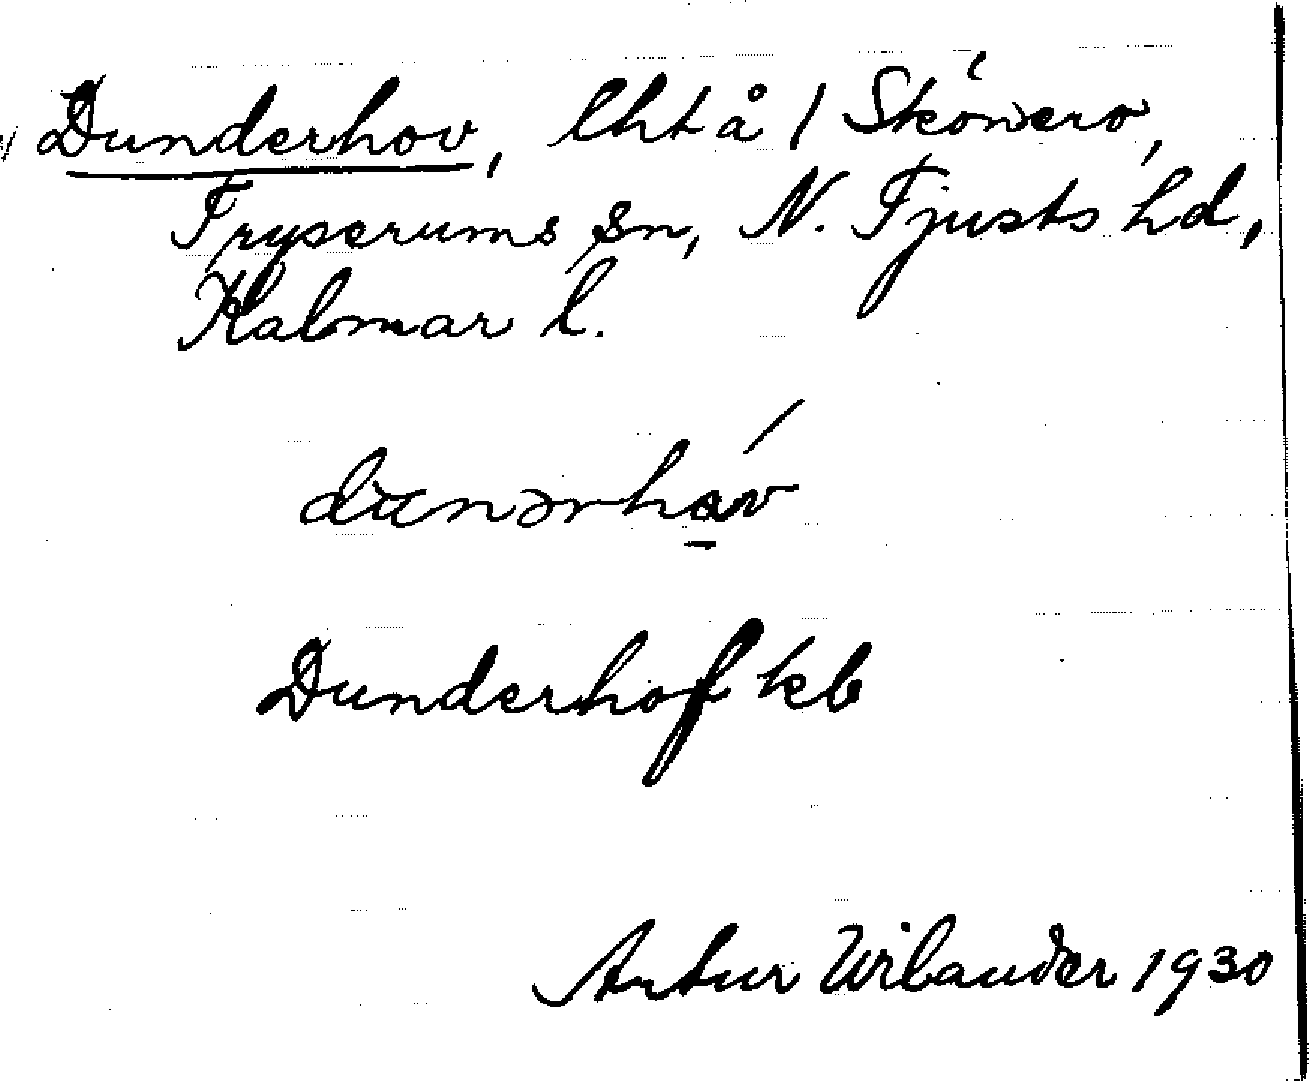 Dunderhov, lht å / Skönero,
Tryserums sn, N. Tjusts hd,
Kalmar l.
dunərháv
Dunderhof kb
Artur Wilander 1930